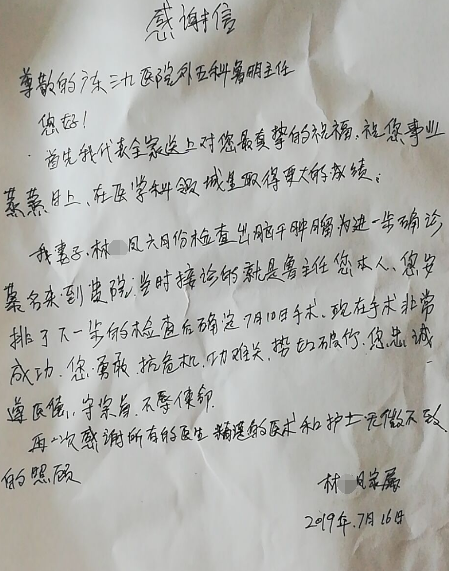 感谢信
尊敬的广东三九医院外五科鲁明主任
您好!
首先我代表全家送上对您最真挚的祝福,祝您事业
蒸蒸日上、在医学科领域里取得更大的成绩;
我妻子、林 凤六月份检查出脑干肿瘤为进一步确诊
慕名来到贵院;当时接诊的就是鲁主任您本人、您安
排了下一步的检查后确定7月10日手术、现在手术非常
成功、您勇敢、抗危机、功难关、势如破竹、您忠诚
遵医德、守宗旨、不辱使命.
再一次感谢所有的医生 精湛的医术和护士无微不致
的照顾
林 凤家属
2019年.7月16日